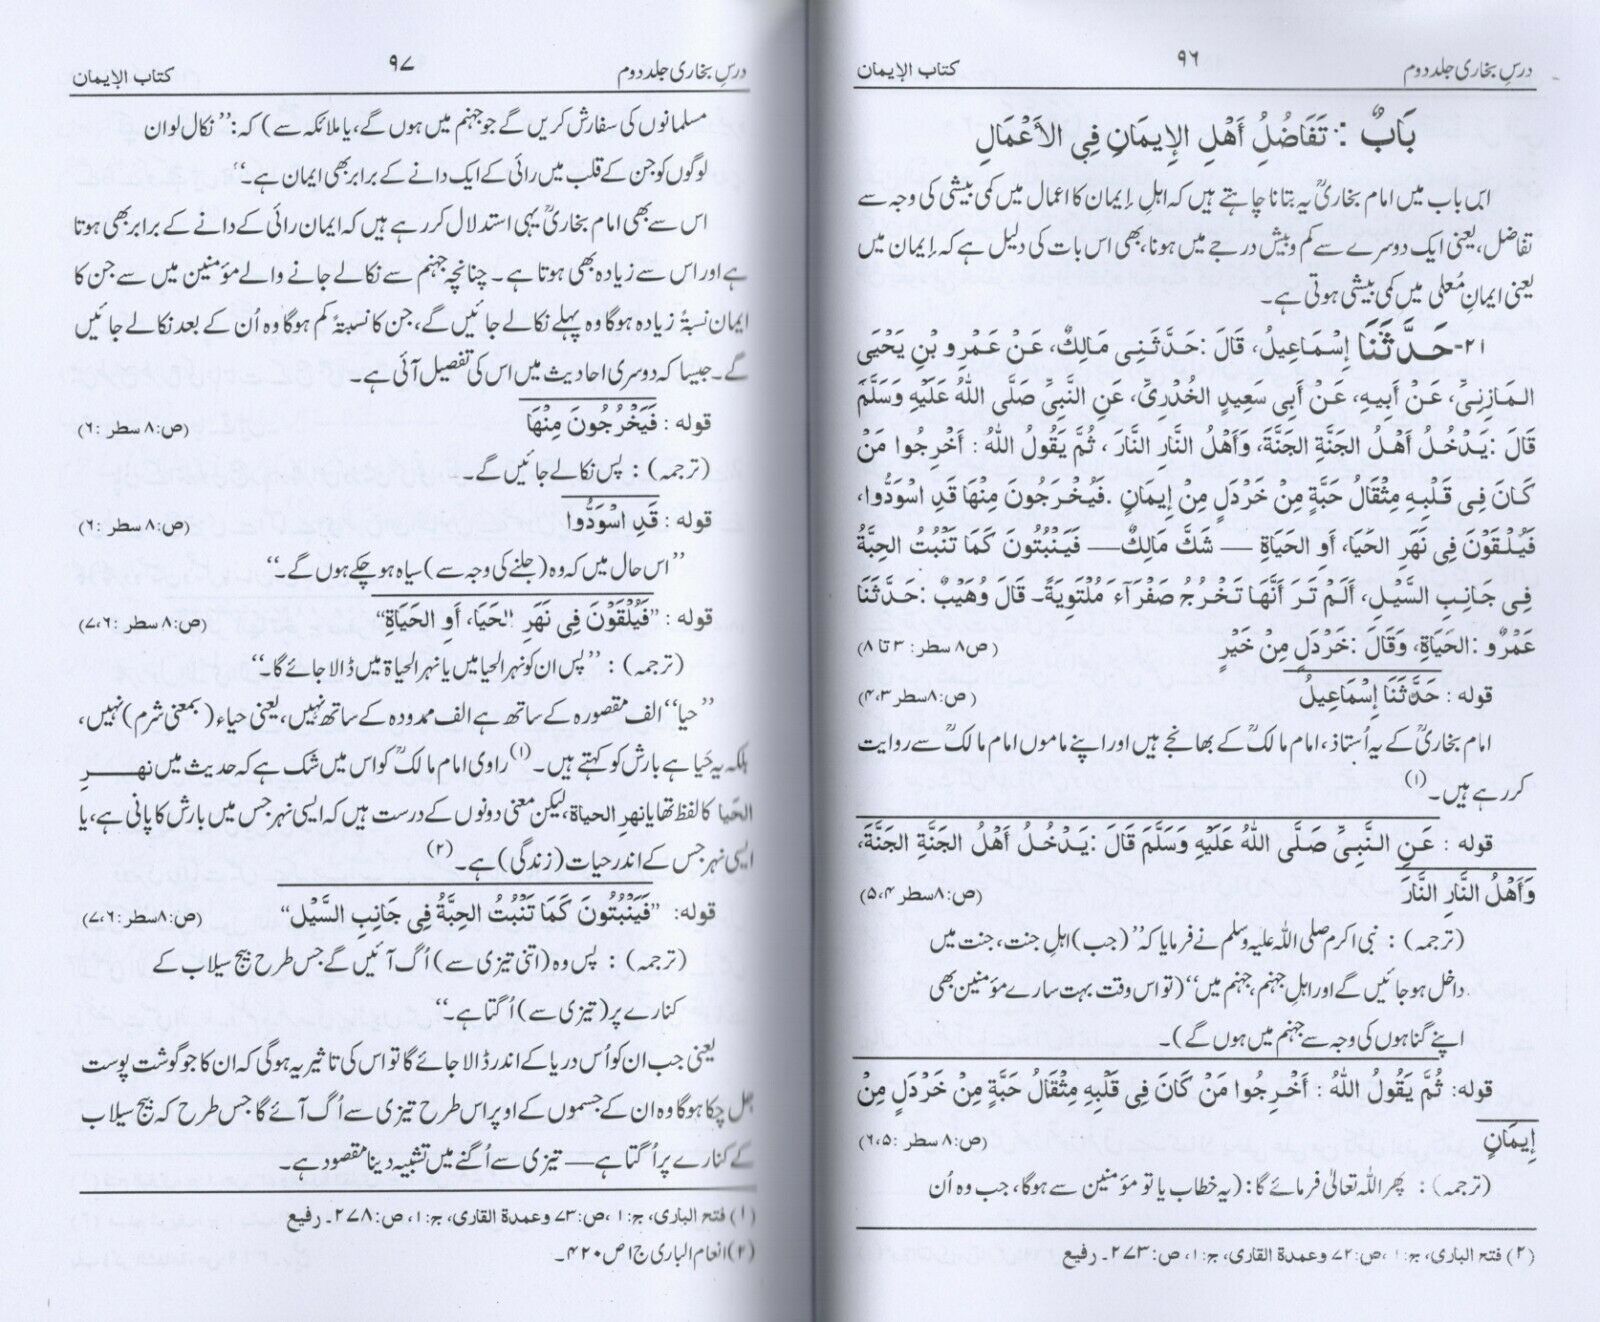 درسِ بخاری جلد دوم ۹۶ کتاب الإیمان
بَابٌ : تَفَاضُلُ أَهْلِ الإِيمَانِ فِي الأَعْمَالِ
اس باب میں امام بخاریؒ یہ بتانا چاہتے ہیں کہ اہلِ اِیمان کا اعمال میں کمی بیشی کی وجہ سے
تفاضل، یعنی ایک دوسرے سے کم وبیش درجے میں ہونا، بھی اس بات کی دلیل ہے کہ اِیمان میں
یعنی ایمانِ مُعلی میں کمی بیشی ہوتی ہے۔
۲۱- حَدَّثَنَا إِسْمَاعِيلُ، قَالَ: حَدَّثَنِي مَالِكٌ، عَنْ عَمْرِو بْنِ يَحْيَى
الْمَازِنِيِّ، عَنْ أَبِيهِ، عَنْ أَبِي سَعِيدٍ الخُدْرِيِّ، عَنِ النَّبِيِّ صَلَّى اللهُ عَلَيْهِ وَسَلَّمَ
قَالَ: يَدْخُلُ أَهْلُ الجَنَّةِ الجَنَّةَ، وَأَهْلُ النَّارِ النَّارَ، ثُمَّ يَقُولُ اللهُ: أَخْرِجُوا مَنْ
كَانَ فِي قَلْبِهِ مِثْقَالُ حَبَّةٍ مِنْ خَرْدَلٍ مِنْ إِيمَانٍ. فَيُخْرَجُونَ مِنْهَا قَدِ اسْوَدُّوا،
فَيُلْقَوْنَ فِي نَهَرِ الحَيَا، أَوِ الحَيَاةِ — شَكَّ مَالِكٌ — فَيَنْبُتُونَ كَمَا تَنْبُتُ الحِبَّةُ
فِي جَانِبِ السَّيْلِ، أَلَمْ تَرَ أَنَّهَا تَخْرُجُ صَفْرَآءَ مُلْتَوِيَةً۔ قَالَ وُهَيْبٌ: حَدَّثَنَا
عَمْرٌو: الحَيَاةِ، وَقَالَ: خَرْدَلٍ مِنْ خَيْرٍ (ص۸ سطر: ۳ تا ۸)
قوله : حَدَّثَنَا إِسْمَاعِيلُ (ص:۸ سطر ۴،۳)
امام بخاریؒ کے یہ اُستاذ، امام مالکؒ کے بھانجے ہیں اور اپنے ماموں امام مالکؒ سے روایت
کر رہے ہیں۔(۱)
قوله : عَنِ النَّبِيِّ صَلَّى اللهُ عَلَيْهِ وَسَلَّمَ قَالَ: يَدْخُلُ أَهْلُ الجَنَّةِ الجَنَّةَ،
وَأَهْلُ النَّارِ النَّارَ (ص:۸ سطر ۵،۴)
(ترجمہ) : نبی اکرم صلی اللہ علیہ وسلم نے فرمایا کہ ”(جب) اہلِ جنت، جنت میں
داخل ہو جائیں گے اور اہلِ جہنم، جہنم میں“ (تو اس وقت بہت سارے مؤمنین بھی
اپنے گناہوں کی وجہ سے جہنم میں ہوں گے)۔
قوله: ثُمَّ يَقُولُ اللهُ : أَخْرِجُوا مَنْ كَانَ فِي قَلْبِهِ مِثْقَالُ حَبَّةٍ مِنْ خَرْدَلٍ مِنْ
إِيمَانٍ (ص:۸ سطر :۶،۵)
(ترجمہ): پھر اللہ تعالیٰ فرمائے گا: (یہ خطاب یا تو مؤمنین سے ہوگا، جب وہ اُن
(۲) فتح الباری، ج:۱، ص:۷۲ وعمدة القاری، ج:۱، ص:۲۷۳۔ رفیع
درسِ بخاری جلد دوم ۹۷ کتاب الإیمان
مسلمانوں کی سفارش کریں گے جو جہنم میں ہوں گے، یا ملائکہ سے) کہ: ”نکال لو ان
لوگوں کو جن کے قلب میں رائی کے ایک دانے کے برابر بھی ایمان ہے۔“
اس سے بھی امام بخاریؒ یہی استدلال کر رہے ہیں کہ ایمان رائی کے دانے کے برابر بھی ہوتا
ہے اور اس سے زیادہ بھی ہوتا ہے۔ چنانچہ جہنم سے نکالے جانے والے مؤمنین میں سے جن کا
ایمان نسبۃً زیادہ ہوگا وہ پہلے نکالے جائیں گے، جن کا نسبۃً کم ہوگا وہ اُن کے بعد نکالے جائیں
گے۔ جیسا کہ دوسری احادیث میں اس کی تفصیل آئی ہے۔
قوله : فَيَخْرُجُونَ مِنْهَا (ص:۸ سطر :۶)
(ترجمہ) : پس نکالے جائیں گے۔
قوله : قَدِ اسْوَدُّوا (ص:۸ سطر :۶)
”اس حال میں کہ وہ (جلنے کی وجہ سے) سیاہ ہو چکے ہوں گے۔“
قوله : ”فَيُلْقَوْنَ فِي نَهَرِ الْحَيَا، أَوِ الْحَيَاةِ“ (ص:۸ سطر :۷،۶)
(ترجمہ) : ”پس ان کو نہر الحیا میں یا نہر الحیاۃ میں ڈالا جائے گا۔“
”حیا“ الف مقصورہ کے ساتھ ہے الف ممدودہ کے ساتھ نہیں، یعنی حیاء (بمعنی شرم) نہیں،
بلکہ یہ حَیا ہے بارش کو کہتے ہیں۔(۱) راوی امام مالکؒ کو اس میں شک ہے کہ حدیث میں نھرِ
الحَیا کا لفظ تھا یا نھرِ الحیاة، لیکن معنی دونوں کے درست ہیں کہ ایسی نہر جس میں بارش کا پانی ہے، یا
ایسی نہر جس کے اندر حیات (زندگی) ہے۔(۲)
قوله: ”فَيَنْبُتُونَ كَمَا تَنْبُتُ الحِبَّةُ فِي جَانِبِ السَّيْلِ“ (ص:۸ سطر :۷،۶)
(ترجمہ) : پس وہ (اتنی تیزی سے) اُگ آئیں گے جس طرح بیج سیلاب کے
کنارے پر (تیزی سے) اُگتا ہے۔“
یعنی جب ان کو اُس دریا کے اندر ڈالا جائے گا تو اس کی تاثیر یہ ہوگی کہ ان کا جو گوشت پوست
جل چکا ہوگا وہ ان کے جسموں کے اوپر اس طرح تیزی سے اُگ آئے گا جس طرح کہ بیج سیلاب
کے کنارے پر اُگتا ہے — تیزی سے اُگنے میں تشبیہ دینا مقصود ہے۔
(۱) فتح الباری، ج:۱، ص:۷۳ وعمدة القاری، ج:۱، ص:۲۷۸۔ رفیع
(۲) انعام الباری ج۱ ص۴۲۰۔